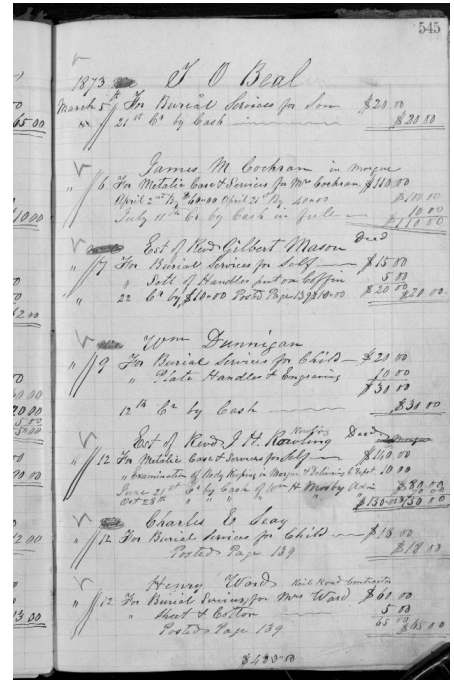 545
1873 T O Beal
March 5th For Burial Services for Son $20.00
" 21st Cr by Cash $20.00
James M. Cochran in Morgue
" 6 For Metalic Case & Services for Mrs Cochran $110.00
April 2nd By $60.00 April 21st By 40.00 $100.00
July 11th Cr by Cash in full 10.00
$110.00
Est of Revd Gilbert Mason Decd
" 7 For Burial Services for Self $15.00
" Sett of Handles put on Coffin 5.00
22 Cr by $10.00 Posted Page 139 $10.00 $20.00 $20.00
Wm Dunnigan
" 9 For Burial Services for Child $20.00
" Plate Handles & Engraving 10.00
$30.00
12th Cr by Cash $30.00
Est of Revd J. H. Rowling Decd
" 12 For Metalic Case & Services for Self $140.00
" Examination of Body Keeping in Morgue & Delivering to Dept 10.00
June 21st Cr by Cash of Wm H Mosby Adm $80.00
Oct 28th " " " " $150.00 $150.00
Charles E. Seay
" 12 For Burial Services for Child $18.00
Posted Page 139 $18.00
Henry Ward Rail Road Contractor
" 12 For Burial Services for Mrs Ward $60.00
" Sheet & Cotton 5.00
Posted Page 139 65.00 $65.00
$423.00